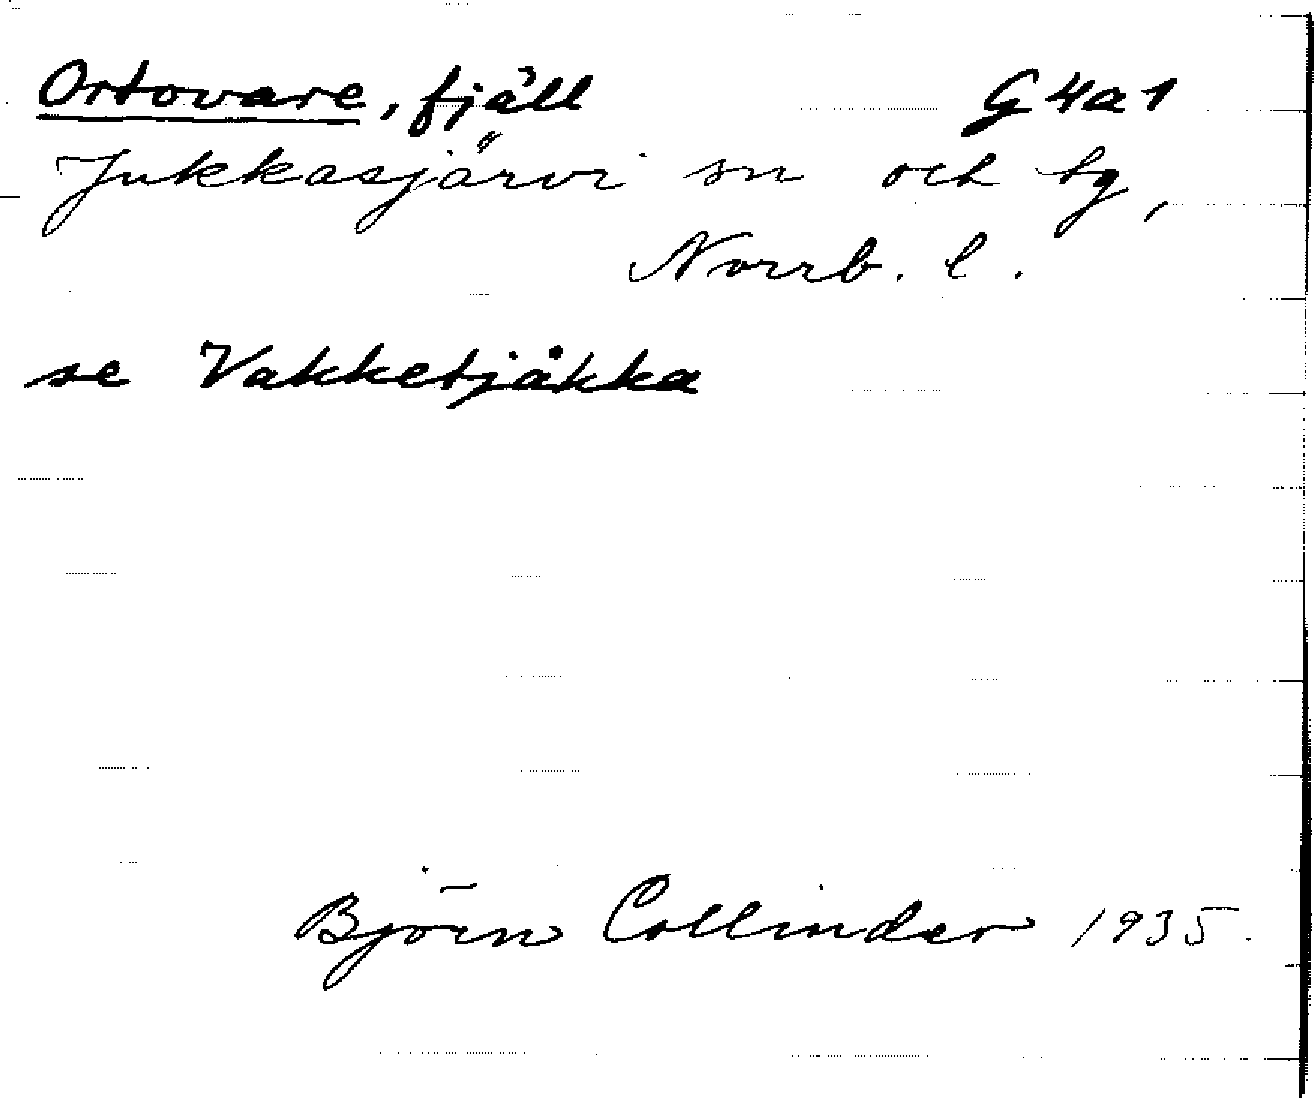 Ortovare, fjäll G 4a1
Jukkasjärvi sn och tg,
Norrb. l.
se Vakketjåkka
Björn Collinder 1935.